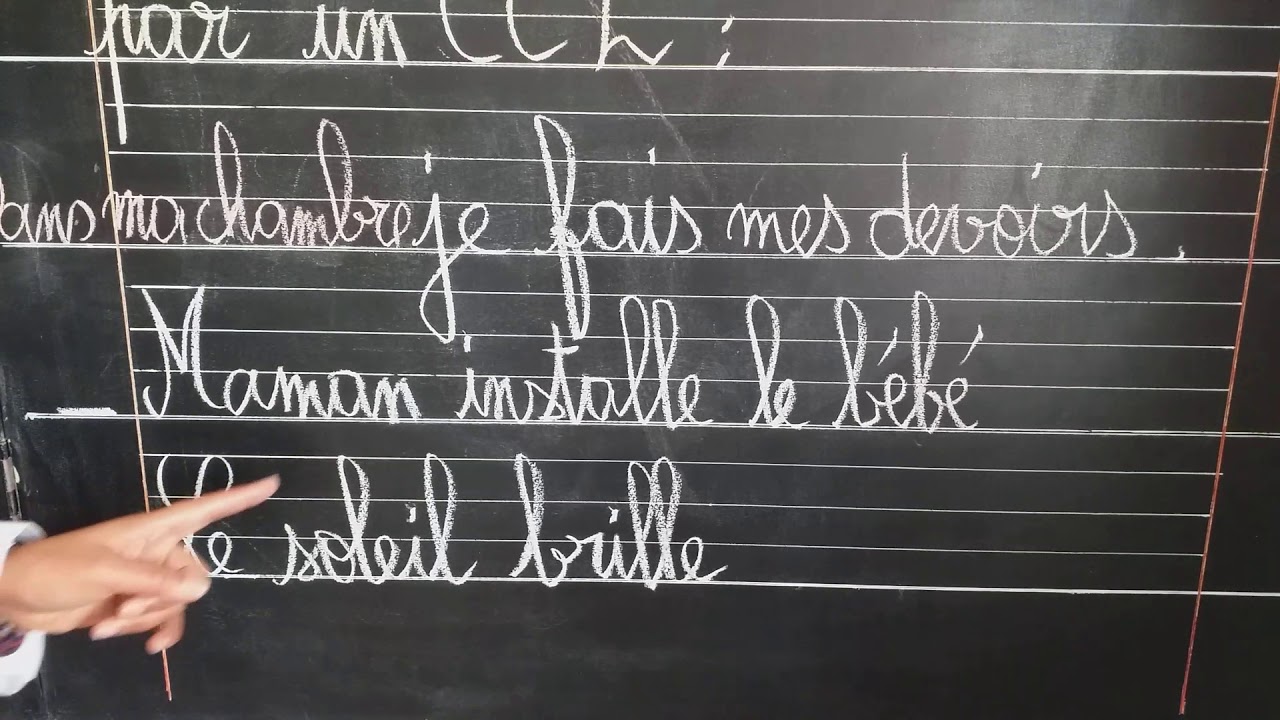 par un CCL :
dans ma chambre je fais mes devoirs.
Maman installe le bébé
Le soleil brille